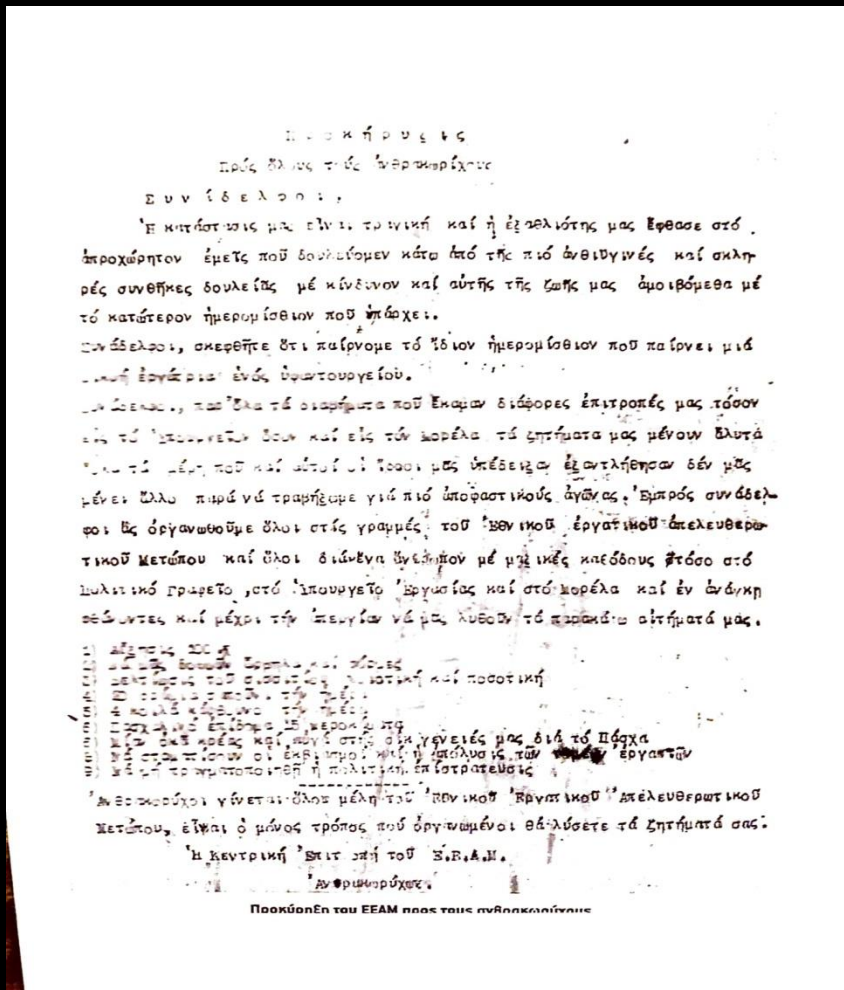 Προκήρυξις
Πρός ὅλους τούς ἀνθρακωρύχους
Συνάδελφοι,
Ἡ κατάστασις μας εἶναι τραγική καί ἡ ἐξαθλιότης μας ἔφθασε στό
ἀπροχώρητον ἐμεῖς ποῦ δουλεύομεν κάτω ἀπό τῆς πιό ἀνθιυγινές καί σκλη-
ρές συνθῆκες δουλείᾶς μέ κίνδυνον καί αὐτῆς τῆς ζωῆς μας ἀμοιβόμεθα μέ
τό κατώτερον ἡμερομίσθιον ποῦ ὑπάρχει.
Συνάδελφοι, σκεφθῆτε ὅτι παίρνομε τό ἴδιον ἡμερομίσθιον ποῦ παίρνει μιά
ἐργάτρια ἑνός ὑφαντουργείου.
Συνάδελφοι, παρ' ὅλα τά διαβήματα ποῦ ἔκαμαν διάφορες ἐπιτροπές μας τόσον
εἰς τό Ὑπουργεῖον ὅσον καί εἰς τόν Μορέλα τά ζητήματα μας μένουν ἄλυτά
τά μέσα ποῦ καί αὐτοί οἱ ἴδιοι μας ὑπέδειξαν ἐξαντλήθησαν δέν μᾶς
μένει ἄλλο παρά νά τραβήξωμε γιά πιό ἀποφαστικούς ἀγῶνας. Ἐμπρός συνάδελ-
φοι ἄς ὀργανωθοῦμε ὅλοι στίς γραμμές τοῦ Ἐθνικοῦ ἐργατικοῦ ἀπελευθερω-
τικοῦ Μετώπου καί ὅλοι μέ μαζικές καθόδους τόσο στό
Πολιτικό Γραφεῖο ,στό Ὑπουργεῖο Ἐργασίας καί στό Μορέλα καί ἐν ἀνάγκη
φθάνοντες καί μέχρι τήν ἀπεργίαν νά μας λυθοῦν τά παρακάτω αἰτήματά μας.
1) Αὔξησις
2) Νά μᾶς δοθοῦν καί
3) Βελτίωσις τοῦ συσσιτίου ποιοτική καί ποσοτική
4) τήν ἡμέρα
5) 4 κιλά κάρβουνο τήν ἡμέρα
6) Πασχαλινό ἐπίδομα 15 μεροκάματα
7) Μίαν ὀκά κρέας καί αὐγά στίς οἰκογένειές μας διά τό Πάσχα
8) Νά σταματίσουν οἱ ἐκβιασμοί καί ἡ ἀπόλυσις τῶν ἐργατῶν
9) Νά μή πραγματοποιηθῆ ἡ πολιτική ἐπιστράτευσις
Ἀνθρακορύχοι γίνεται ὅλοι μέλη τοῦ Ἐθνικοῦ Ἐργατικοῦ Ἀπελευθερωτικοῦ
Μετώπου, εἶναι ὁ μόνος τρόπος ποῦ ὀργανωμένοι θά λύσετε τά ζητήματά σας.
Ἡ Κεντρική Ἐπιτροπή τοῦ Ε.Ε.Α.Μ.
Ἀνθρακορύχων.
Προκύρηξη του ΕΕΑΜ προς τους ανθρακωρύχους